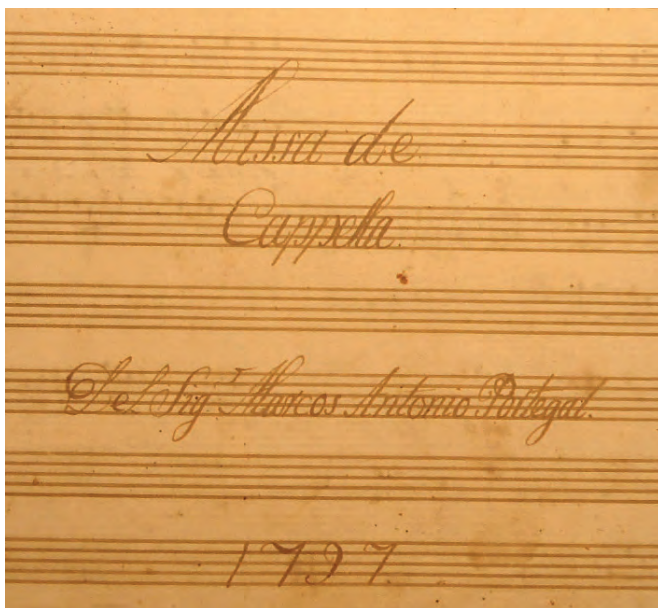 Missa de
Cappella.
Del Sig.r Marcos Antonio Portegal.
1797.